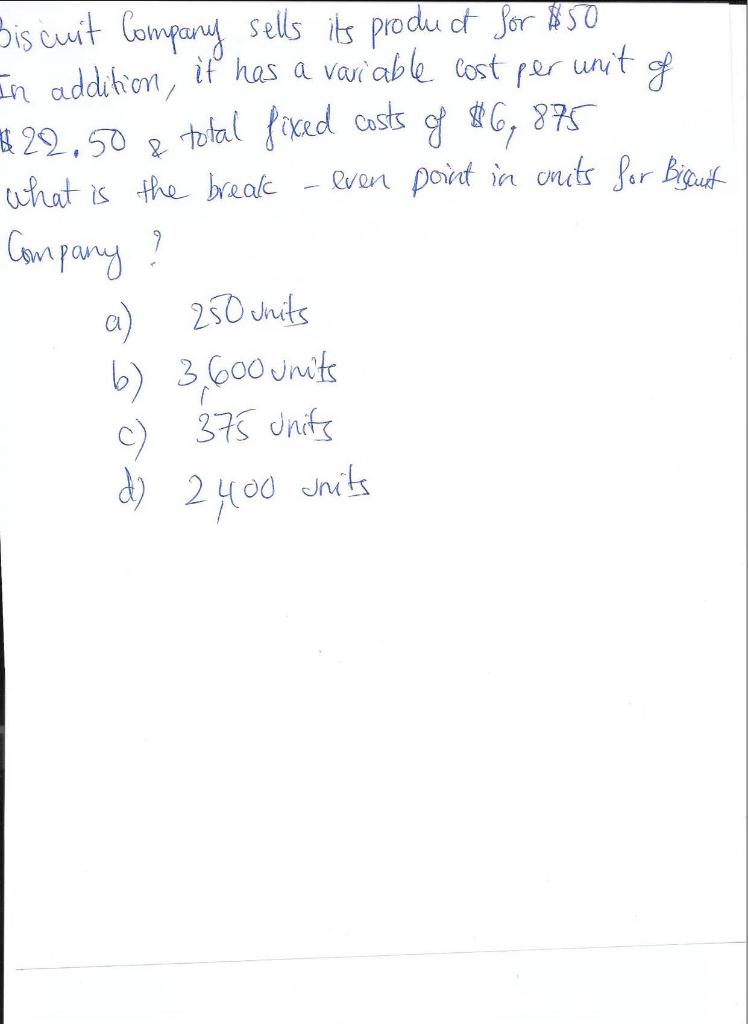 Biscuit Company sells its product for $50
In addition, it has a variable cost per unit of
$22.50 & total fixed costs of $6,875
what is the break-even point in units for Biscuit
Company?
a) 250 units
b) 3,600 units
c) 375 units
d) 2,400 units